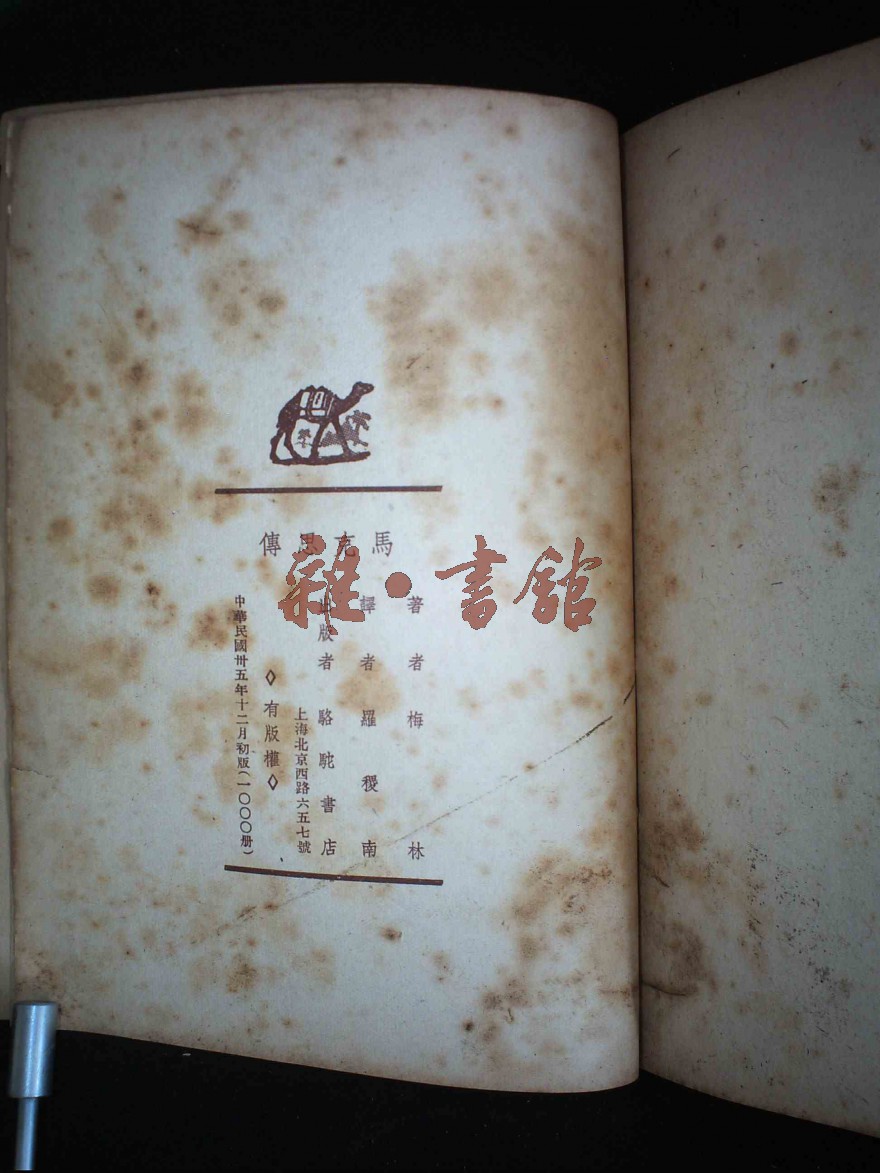 馬克思傳
著者梅林
譯者羅稷南
出版者駱駝書店
上海北京西路六五七號
◇有版權◇
中華民國卅五年十二月初版(一〇〇〇册)
雜·書館